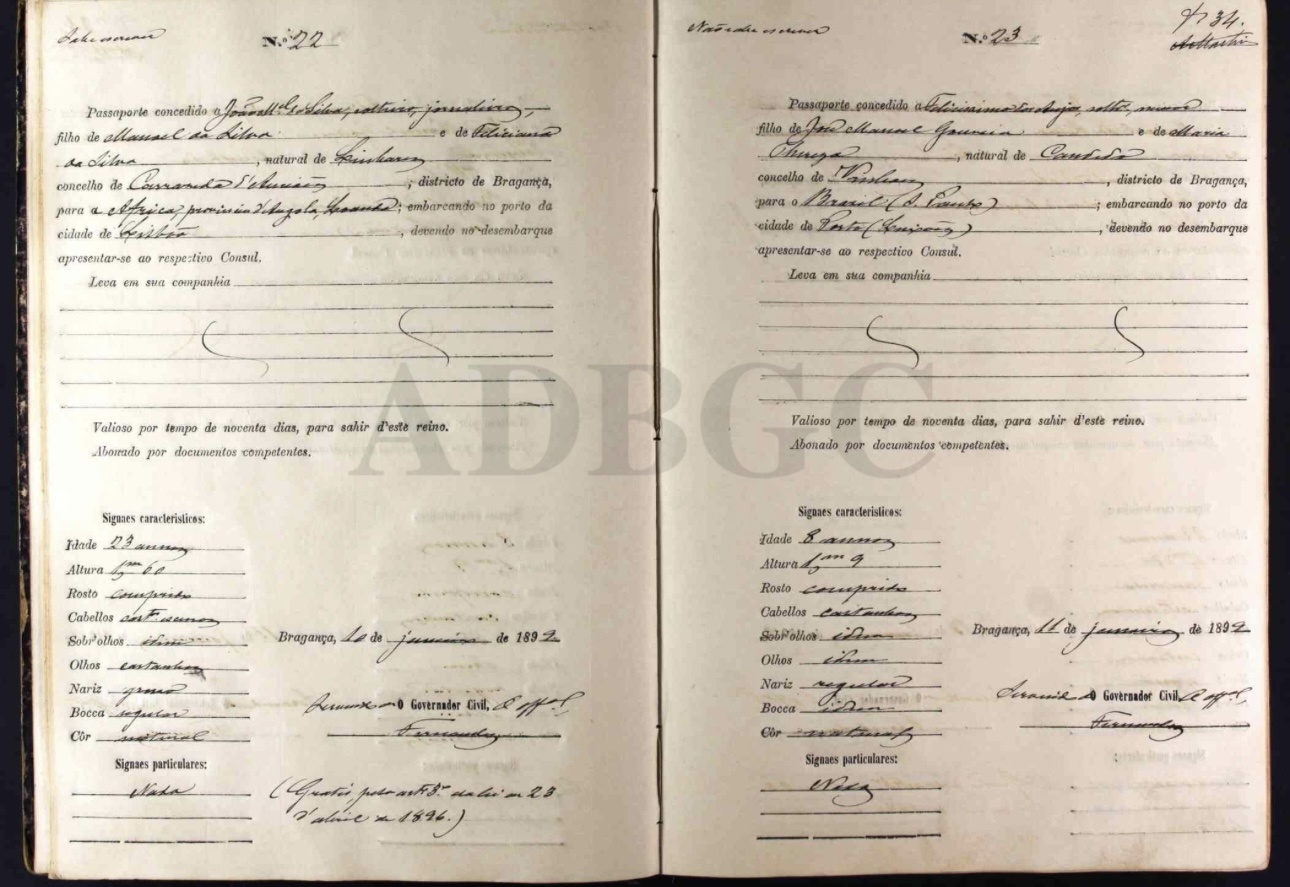 Sabe escrever
N.º 22
Passaporte concedido a João M.el da Silva, solteiro, jornaleiro,
filho de Manoel da Silva e de Feliciana
da Silva, natural de Linhares
concelho de Carrazeda d'Anciães; districto de Bragança,
para a Africa, provincia d'Angola, Loanda; embarcando no porto da
cidade de Lisboa, devendo no desembarque
apresentar-se ao respectivo Consul.
Leva em sua companhia
Valioso por tempo de noventa dias, para sahir d'este reino.
Abonado por documentos competentes.
Signaes caracteristicos:
Idade 23 annos
Altura 1,m 60
Rosto comprido
Cabellos cast. escuros
Sobr'olhos idem
Bragança, 10 de janeiro de 1892
Olhos castanhos
Nariz grosso
Bocca regular
Servindo de O Governador Civil, O off.al,
Côr natural
Fernandes
Signaes particulares:
Nada
(Gratis, pelo art. 3.º da lei de 23
d'abril de 1896.)
Não sabe escrever
N.º 23
34.
Passaporte concedido a Felicissimo dos Anjos, solt.º, menor
filho de José Manoel Gouveia e de Maria
, natural de Candedo
concelho de Vinhaes, districto de Bragança,
para o Brazil (S. Paulo); embarcando no porto da
cidade de Porto (Leixões), devendo no desembarque
apresentar-se ao respectivo Consul.
Leva em sua companhia
Valioso por tempo de noventa dias, para sahir d'este reino.
Abonado por documentos competentes.
Signaes caracteristicos:
Idade 8 annos
Altura 1,m 9
Rosto comprido
Cabellos castanhos
Sobr'olhos idem
Bragança, 11 de janeiro de 1892
Olhos idem
Nariz regular
Servindo de O Governador Civil, O off.al,
Bocca idem
Fernandes
Côr natural
Signaes particulares:
Nada
ADBGC